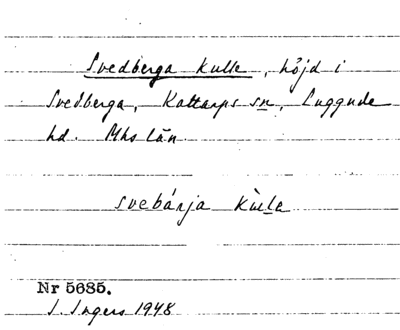 Svedberga kulle, höjd i
Svedberga, Kattarps sn, Luggude
hd. Mhs län
svebárja kùlla
Nr 5685.
I. Ingers 1948